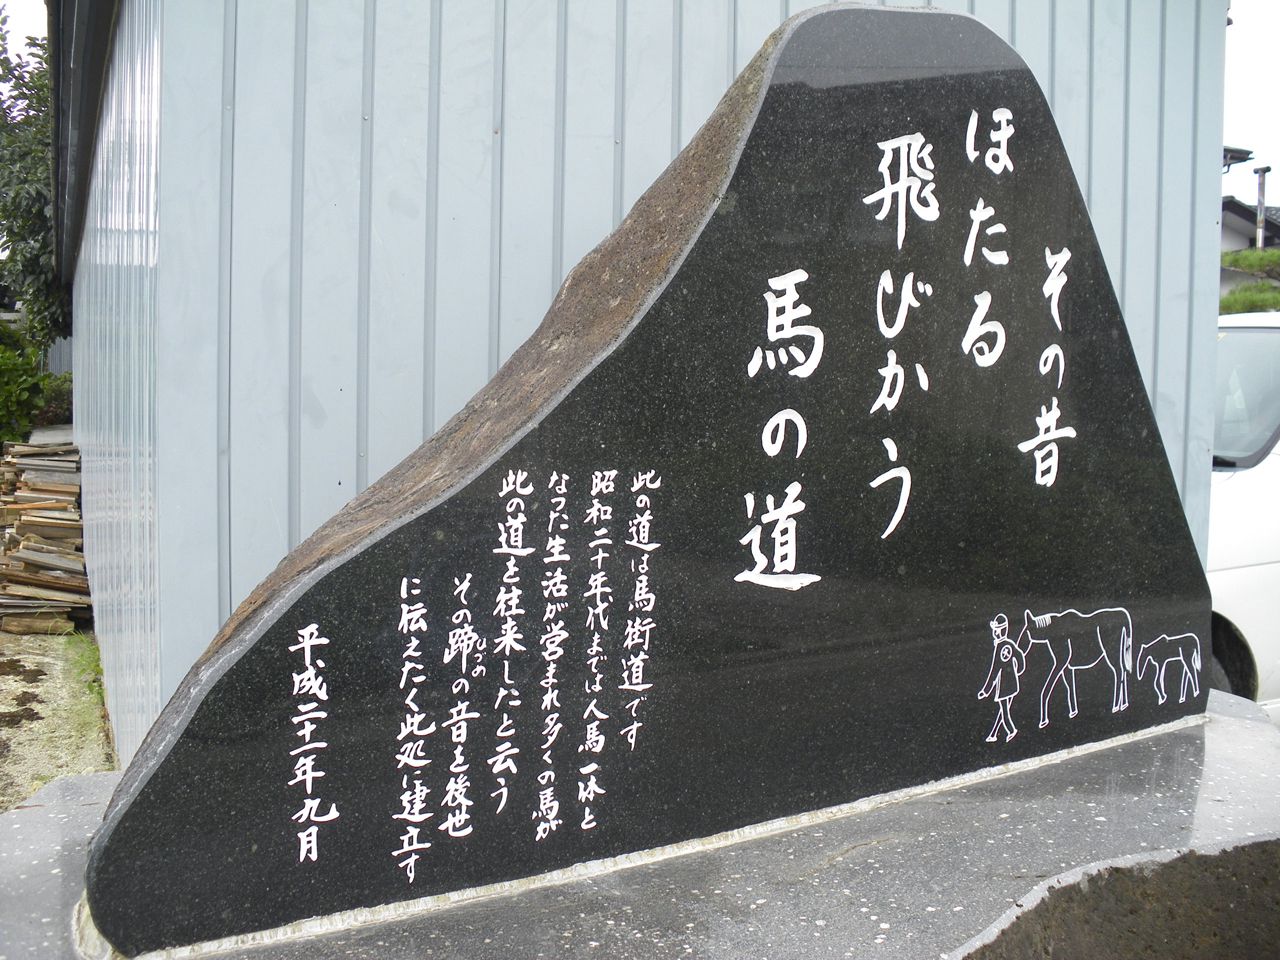 その昔
ほたる
飛びかう
馬の道
此の道は馬街道です
昭和二十年代までは人馬一体と
なった生活が営まれ多くの馬が
此の道を往来したと云う
その蹄の音を後世
ひづめ
に伝えたく此処に建立す
平成二十一年九月